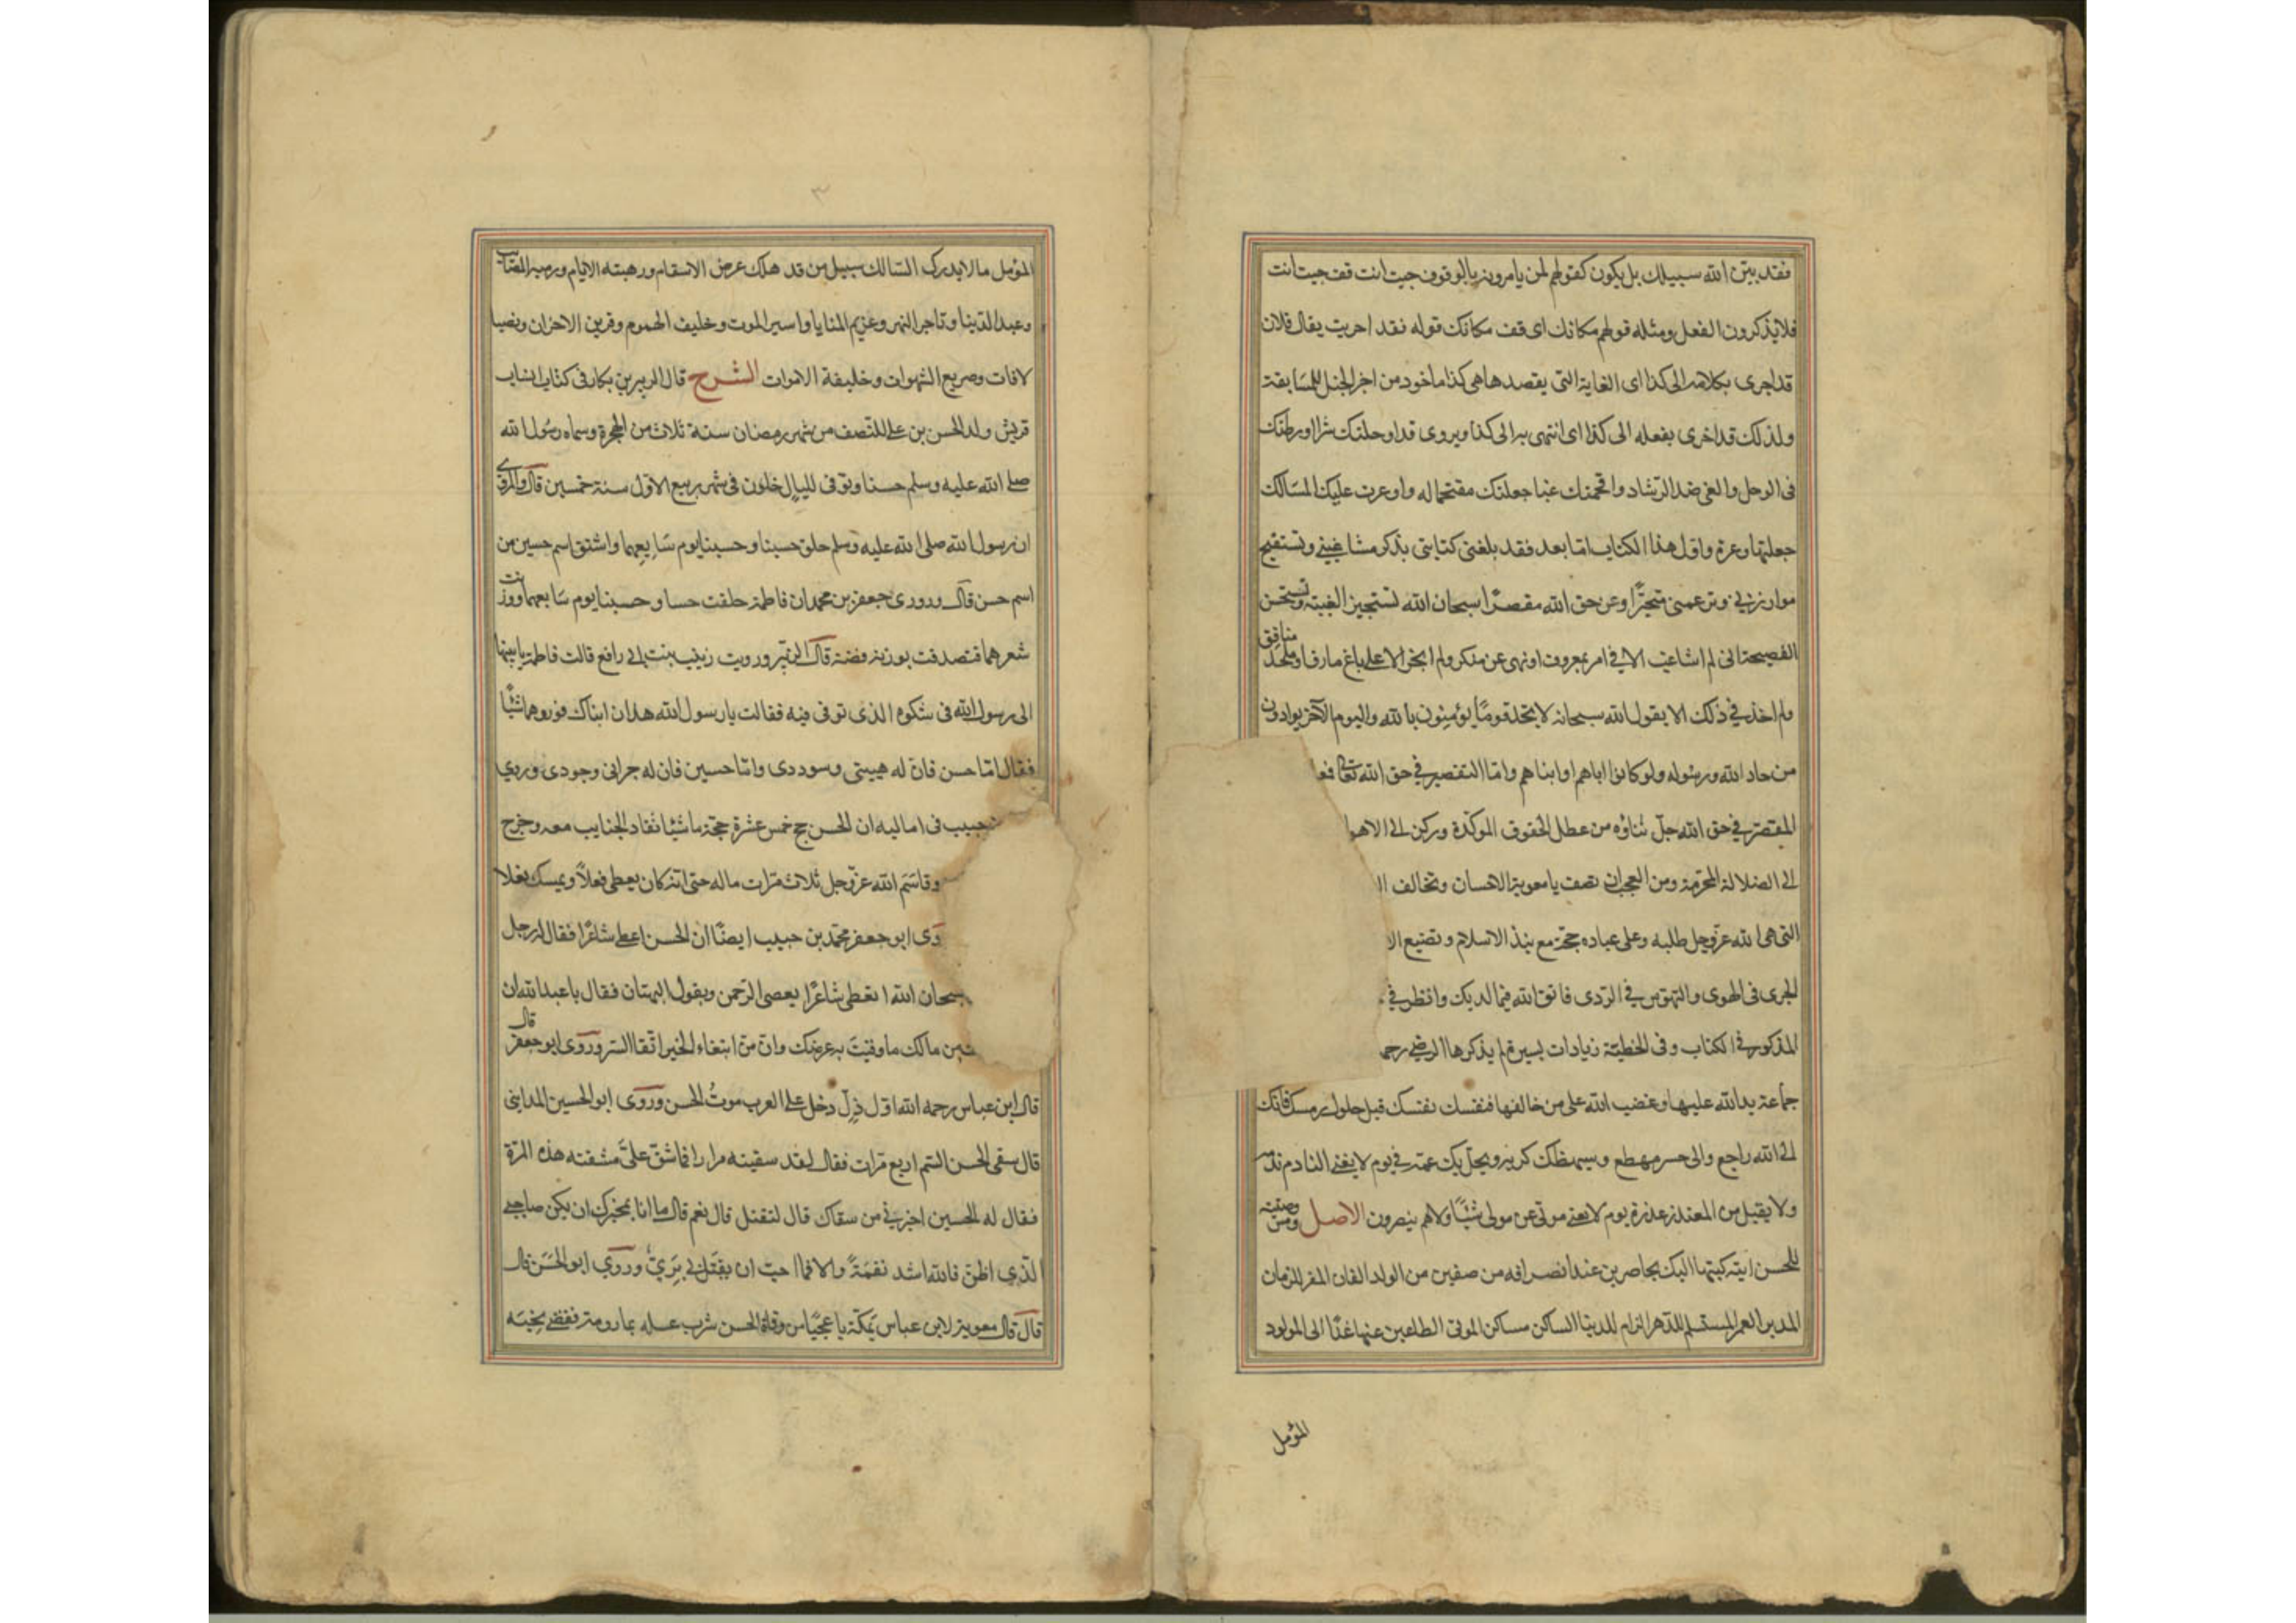 فقد بين الله سبيلك بل يكون كقولهم لمن يامرونه بالوقوف حيث انت قف حيث انت
فلا يذكرون الفعل ومثله قولهم مكانك اى قف مكانك قوله فقد اجريت يقال فلان
قد اجرى بكلامه الى كذا اى الغاية التى يقصدها هى كذا ماخوذ من اجر الخيل للمسابقة
ولذلك قد اجرى بفعله الى كذا اى انتهى به الى كذا ويروى قد اوحلتك شرا اورطتك
فى الوحل والغى ضد الرشاد واقحمتك غيا جعلتك مقتحما له واوعرت عليك المسالك
جعلتها وعرة واول هذا الكتاب اما بعد فقد بلغنى كتابتى بذكر مشاغبتى وتستقبح
موازرتى وتزعمنى متجبرا وعن حق الله مقصرا سبحان الله تستجيز الغيبة وتستحسن
العضيهة انى لم اشاغب الا فى امر بمعروف او نهى عن منكر ولم اتجر الا على باغ مارق او ملحد منافق
ولم اخذ فى ذلك الا بقول الله سبحانه لا تجد قوما يؤمنون بالله واليوم الآخر يوادون
من حاد الله ورسوله ولو كانوا اباهم او ابناهم واما التقصير فى حق الله تعالى فعا
المقصر فى حق الله جل ثناؤه من عطل الحقوق الموكدة وركن الى الاهوا
الى الضلالة المحرمة ومن العجب ان تصف يا معوية الاحسان وتخالف ا
التى هى لله عز وجل طلبه وعلى عباده حجة مع نبذ الاسلام وتضيع الا
الجرى فى الهوى والتهوس فى الردى فاتق الله فيما لديك وانظر فى
المذكور فى الكتاب وفى الخطبة زيادات يسيرة لم يذكرها الرضى رحمه
جماعة يد الله عليها وغضب الله على من خالفها فنفسك نفسك قبل حلول رمسك فانك
الى الله راجع والى حشره مهطع وسيبهظك كربه ويحل بك غمه فى يوم لا يغنى النادم ندمه
ولا يقبل من المعتذر عذره يوم لا يغنى مولى عن مولى شيئا ولا هم ينصرون الاصل ومن وصيته
للحسن ايته كتبها اليك بحاضرين عند انصرافه من صفين من الوالد الفان المقر للزمان
المدبر العمر المستسلم للدهر الذام للدنيا الساكن مساكن الموتى الظاعن عنها غدا الى المولود
المؤمل
٣
المؤمل ما لا يدرك السالك سبيل من قد هلك عرض الاسقام ورهينة الايام ورمية المصائب
وعبد الدنيا وتاجر الغرور وغريم المنايا واسير الموت وحليف الهموم وقرين الاحزان ونصب
لافات وصريع الشهوات وخليفة الاموات الشرح قال الزبير بن بكار فى كتاب انساب
قريش ولد الحسن بن على للنصف من شهر رمضان سنة ثلاث من الهجرة وسماه رسول الله
صلى الله عليه وسلم حسنا وتوفى لليال خلون فى شهر ربيع الاول سنة خمسين قال والمروى
ان رسول الله صلى الله عليه وسلم حلق حسنا وحسينا يوم سابعهما واشتق اسم حسين من
اسم حسن قال وروى جعفر بن محمد ان فاطمة حلقت حسنا وحسينا يوم سابعهما ووزنت
شعرهما فتصدقت بوزنه فضة قال الزبير ورويت زينب بنت ابى رافع قالت فاطمة بابنيها
الى رسول الله فى شكوه الذى توفى فيه فقالت يا رسول الله هذان ابناك فورثهما شيئا
فقال اما حسن فان له هيبتى وسوددى واما حسين فان له جراتى وجودى وروى
حبيب فى اماليه ان الحسن حج خمس عشرة حجة ماشيا تقاد الجنايب معه وخرج
وقاسم الله عز وجل ثلاث مرات ماله حتى انه كان يعطى نعلا ويمسك نعلا
روى ابو جعفر محمد بن حبيب ايضا ان الحسن اعطى شاعرا فقال له رجل
سبحان الله اتعطى شاعرا يعصى الرحمن ويقول البهتان فقال يا عبد الله ان
من مالك ما وقيت به عرضك وان من ابتغاء الخير اتقا الشر وروى ابو جعفر قال
قال ابن عباس رحمه الله اول ذل دخل على العرب موت الحسن وروى ابو الحسين المداينى
قال سقى الحسن السم اربع مرات فقال لقد سقيته مرارا فما شق على مشقته هذه المرة
فقال له الحسين اخبرنى من سقاك قال لتقتله قال نعم قال ما انا بمخبرك ان يكن صاحبى
الذى اظن فالله اشد نقمة والا فما احب ان يقتل بى برى وروى ابو الحسن قال
قال قال معوية لابن عباس بمكة يا عجبا من وفاة الحسن شرب عسله بما رومة فقضى نحبه